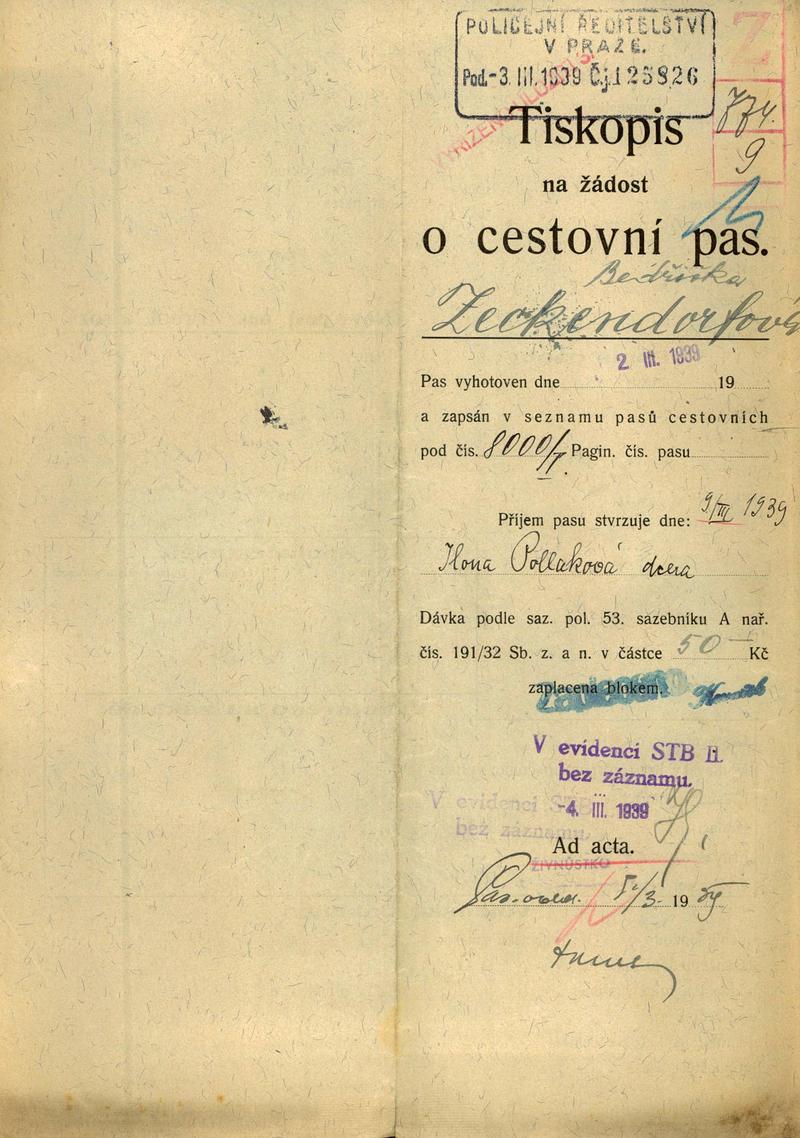 POLICEJNÍ ŘEDITELSTVÍ
V PRAZE.
Pod.-3. III. 1939 Č.j. 125826
774.
9
Tiskopis
na žádost
o cestovní pas.
Bedřiška
Zeckendorfová
2. III. 1939
Pas vyhotoven dne 19
a zapsán v seznamu pasů cestovních
pod čís. 8000/ Pagin. čís. pasu
Příjem pasu stvrzuje dne: 9/III 1939
Ilona Pollaková dcera
Dávka podle saz. pol. 53. sazebníku A nař.
čís. 191/32 Sb. z. a n. v částce 50 Kč
zaplacena blokem.
V evidenci STB II.
bez záznamu.
-4. III. 1939
V evidenci STB
bez záznamu.
Ad acta.
ŽIVNŮSTKO
5/3 19 39